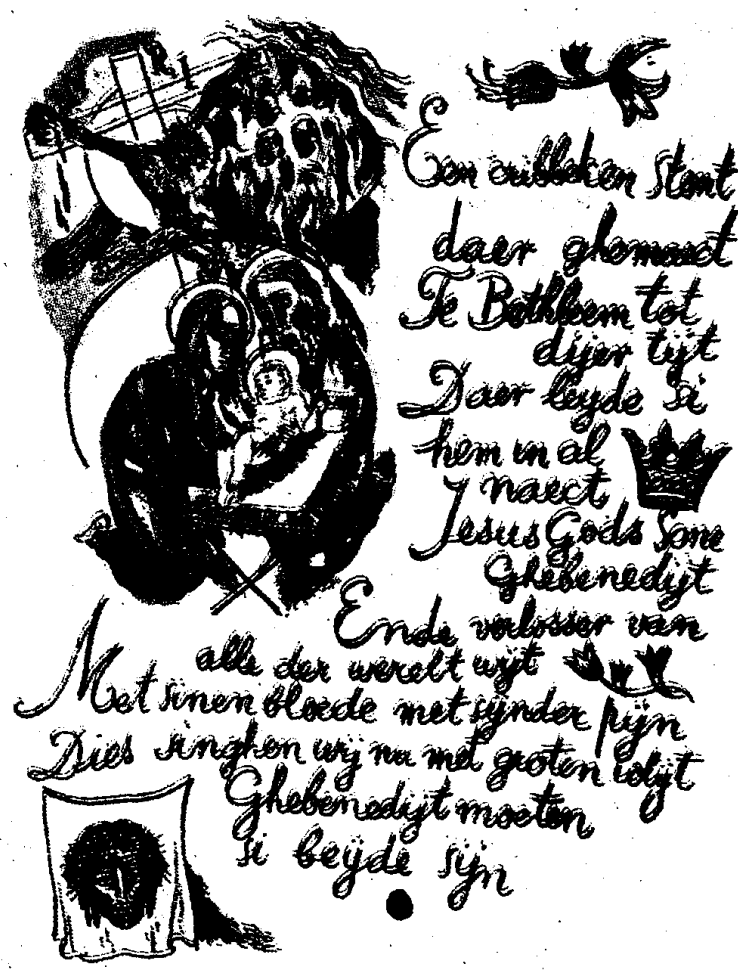 Een cribbeken stont
daer ghemaect
Te Bethleem tot
dijer tijt
Daer leyde si
hem in al
naect
Jesus Gods Sone
Ghebenedijt
Ende verlosser van
alle der werelt wijt
Met sinen bloede met sijnder pijn
Dies singhen wij nu met groten vlijt
Ghebenedijt moeten
si beyde sijn